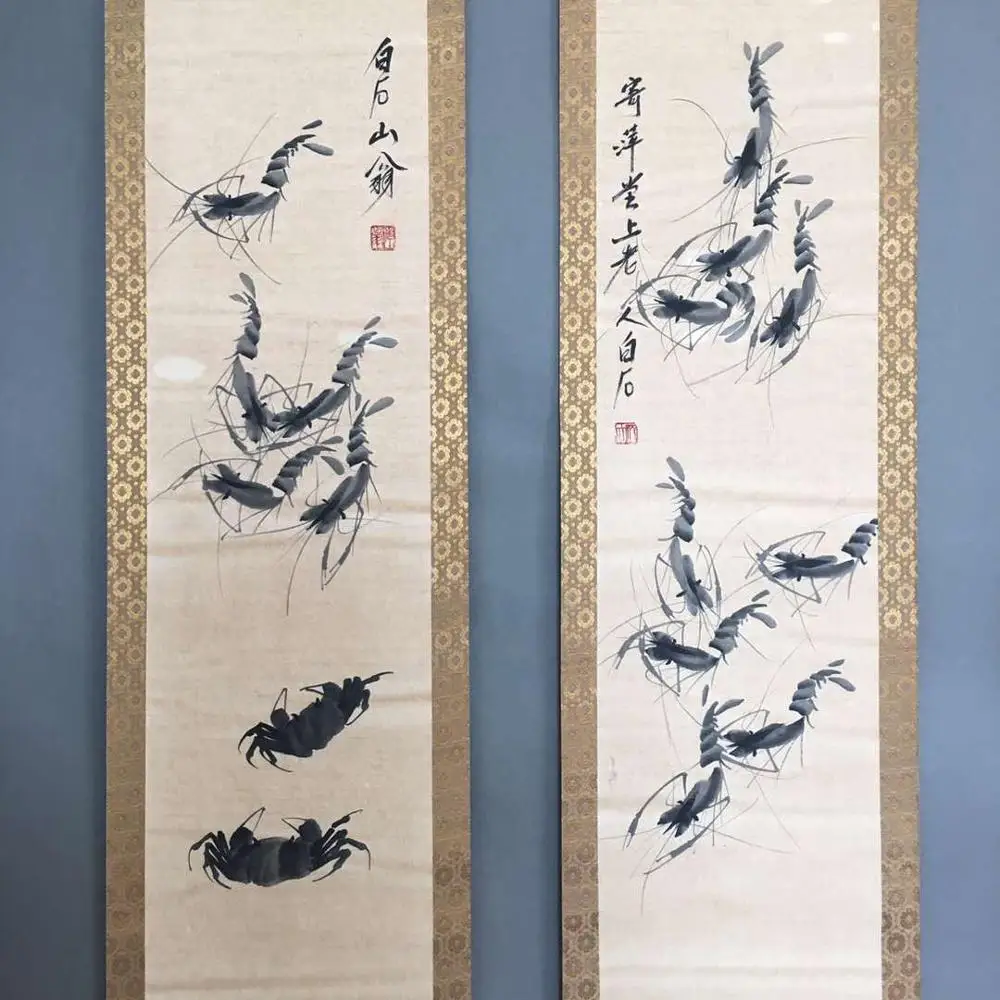 白石山翁
寄萍堂上老人白石